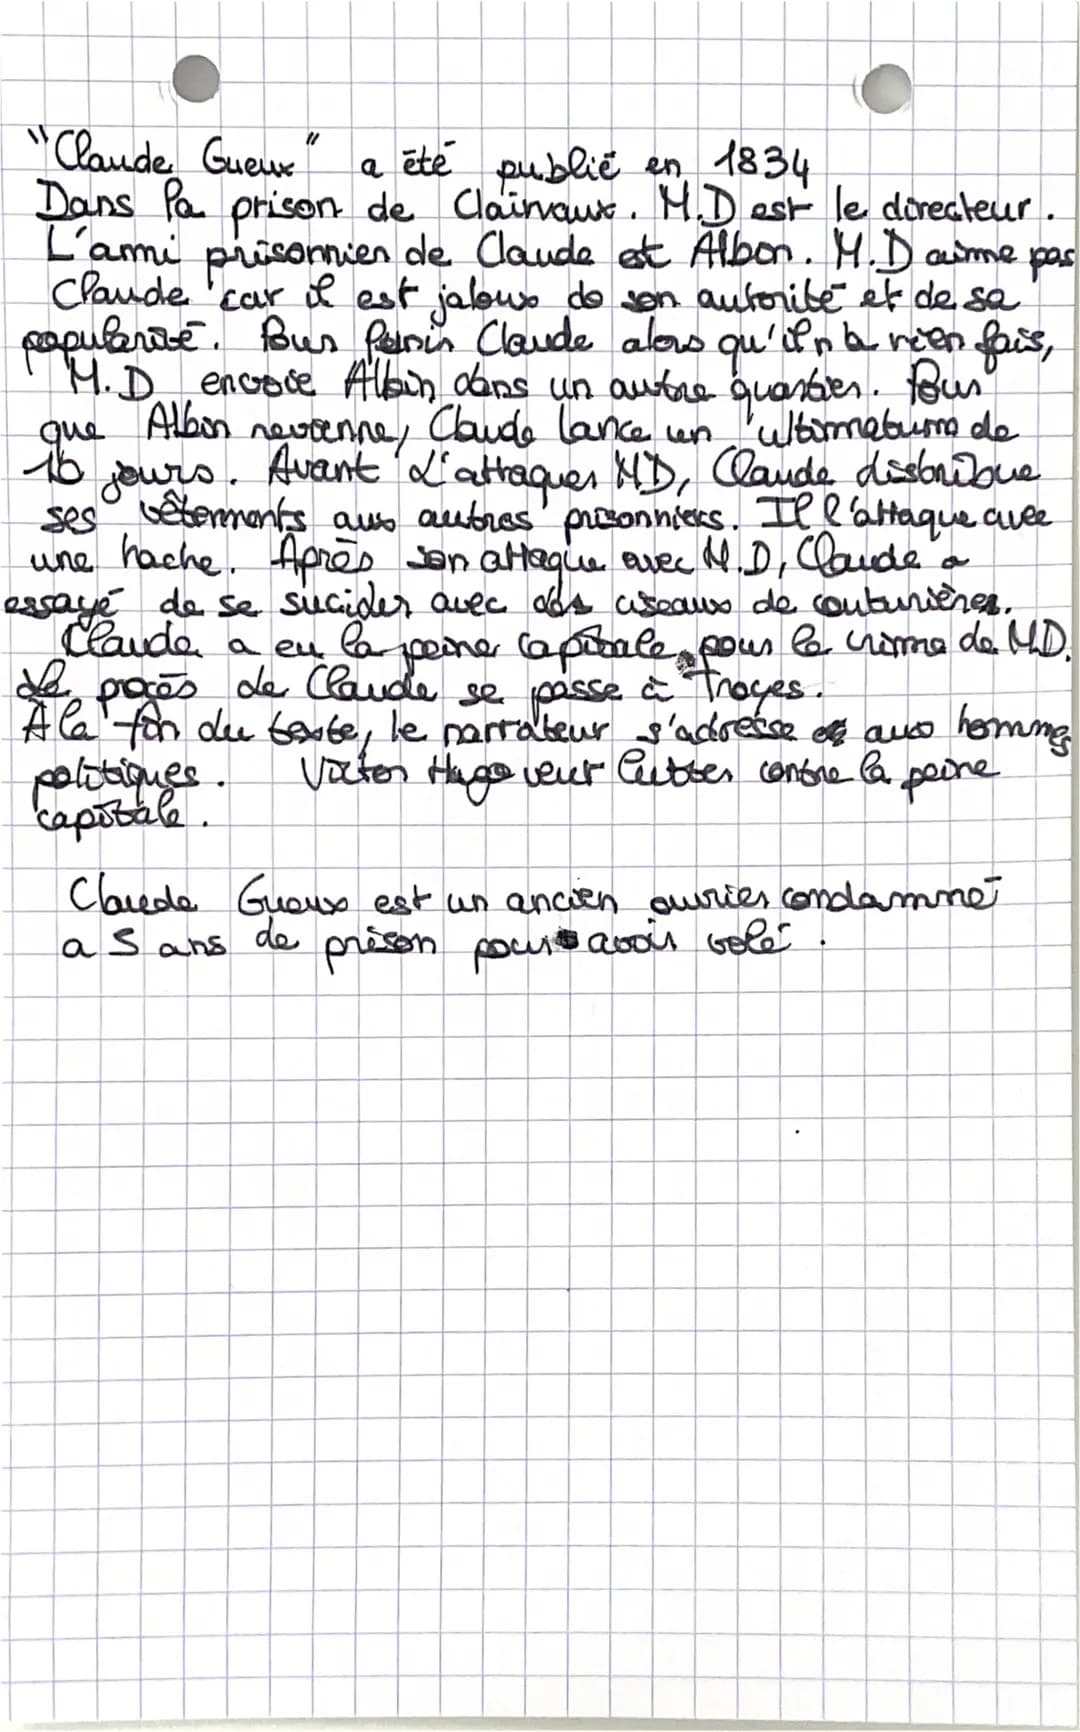 "Claude Gueux" a été publié en 1834
Dans la prison de Clairvaux. M.D est le directeur.
L'ami prisonnier de Claude est Albin. M.D aime pas
Claude car il est jaloux de son autorité et de sa
popularité. Pour punir Claude alors qu'il n'a rien fais,
M.D envoie Albin dans un autre quartier. Pour
que Albin revienne, Claude lance un ultimatum de
10 jours. Avant d'attaquer MD, Claude distribue
ses vêtements aux autres prisonniers. Il l'attaque avec
une hache. Après son attaque avec M.D, Claude a
essayé de se sucider avec des ciseaux de couturières.
Claude a eu la peine capitale pour le crime de MD.
Le procès de Claude se passe à Troyes.
À la fin du texte, le narrateur s'adresse aux hommes
politiques. Victor Hugo veut lutter contre la peine
capitale.
Claude Gueux est un ancien ouvrier condamné
a 5 ans de prison pour avoir volé.